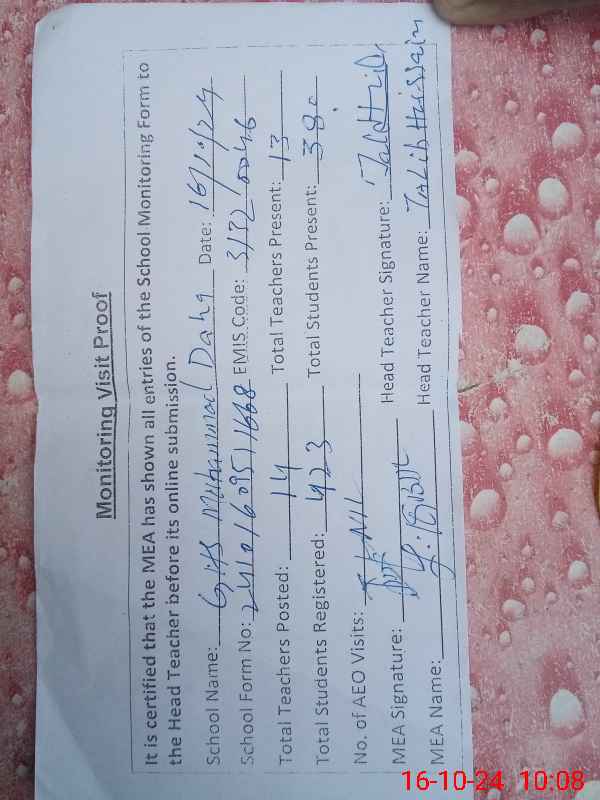 Monitoring Visit Proof
It is certified that the MEA has shown all entries of the School Monitoring Form to
the Head Teacher before its online submission.
School Name: GHS Muhammad Daha Date: 16/10/24
School Form No: EMIS Code: 313210046
Total Teachers Posted: 14 Total Teachers Present: 13
Total Students Registered: 423 Total Students Present: 380
No. of AEO Visits: NIL
MEA Signature: Head Teacher Signature:
MEA Name: Head Teacher Name: TALIB HUSSAIN
16-10-24 10:08